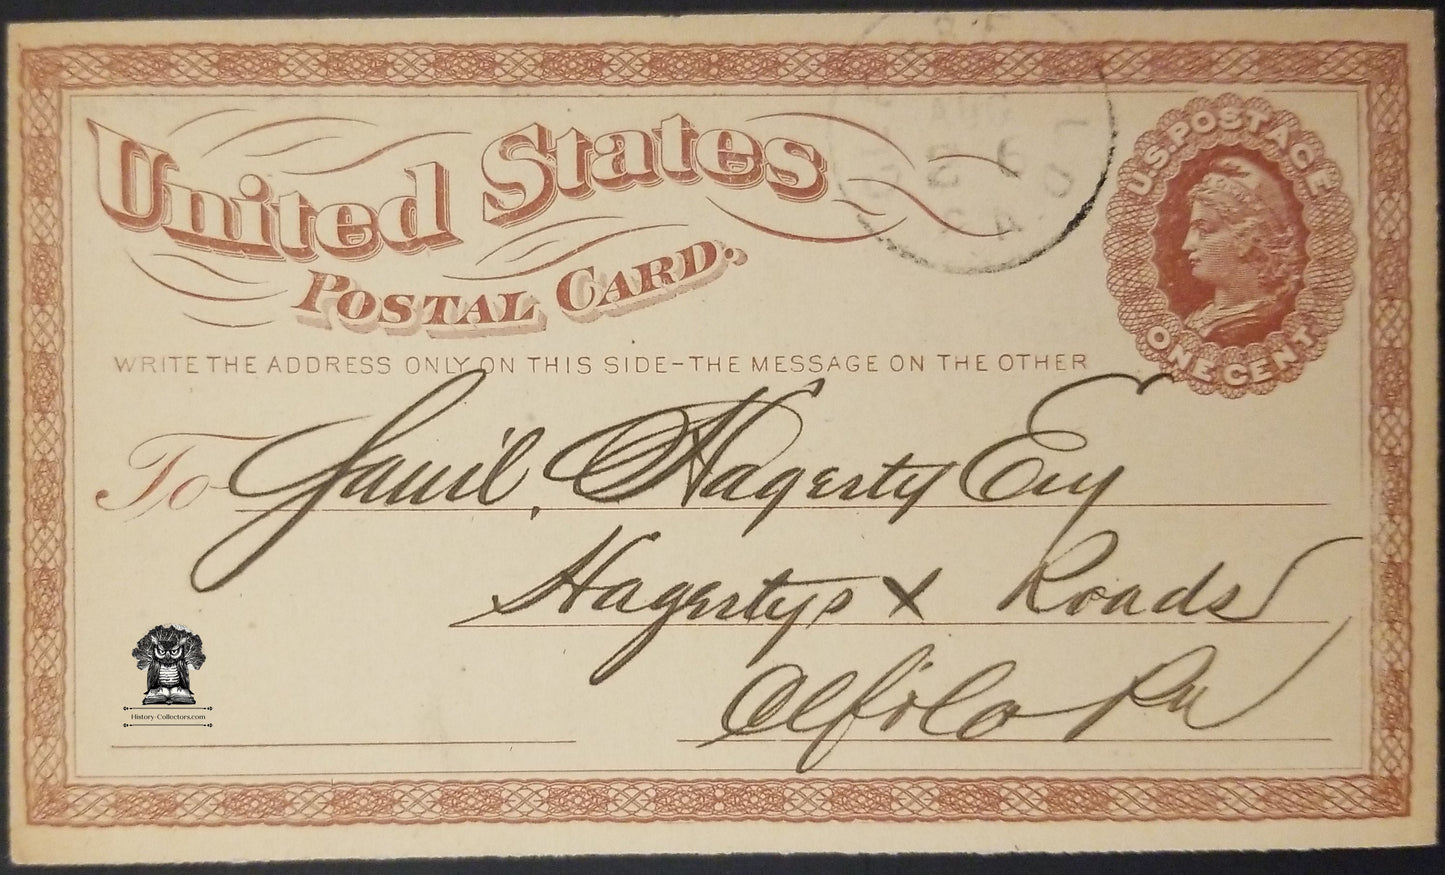 United States
Postal Card.
U.S. POSTAGE
ONE CENT
WRITE THE ADDRESS ONLY ON THIS SIDE-THE MESSAGE ON THE OTHER
To Hagerty
Hagertys X Roads
Pa
History-Collectors.com